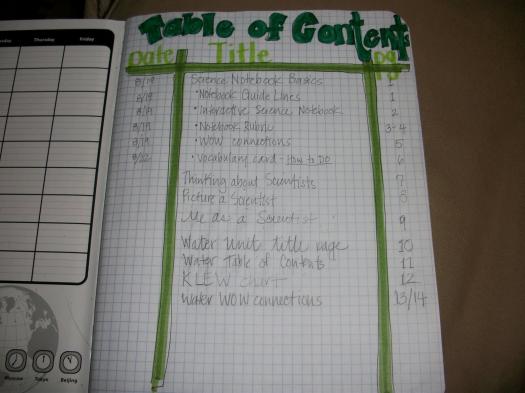 Table of Content
Date Title Pg
Thursday Friday
8/19 Science Notebook Basics 1
8/19 • Notebook Guide Lines 1
8/19 • Interactive Science Notebook 2
8/19 • Notebook Rubric 3-4
8/19 • WOW connections 5
8/22 • Vocabulary card - How to Do 6
Thinking about Scientists 7
Picture a Scientist 8
Me as a Scientist 9
Water Unit title page 10
Water Table of Contents 11
KLEW chart 12
Water WOW connections 13/14
Moscow Tokyo Beijing